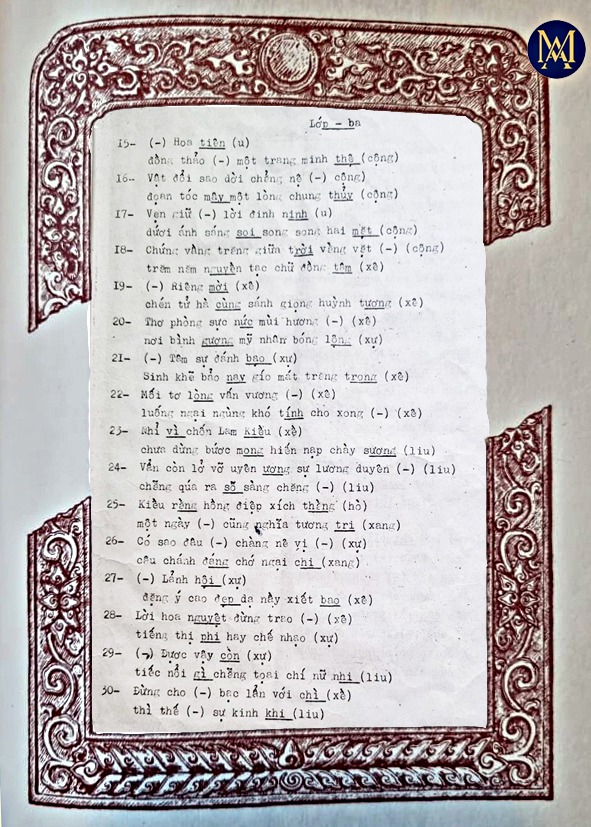 MA
Lớp - ba
15- (-) Hoa tiên (u)
đồng thảo (-) một trang minh thệ (cộng)
16- Vật đổi sao dời chẳng nệ (-) cộng)
đoạn tóc mây một lòng chung thủy (cộng)
17- Vẹn giữ (-) lời đinh ninh (u)
dưới ánh sáng soi song song hai mặt (cộng)
18- Chứng vầng trăng giữa trời vằng vặt (-) (cộng)
trăm năm nguyền tạc chữ đồng tâm (xê)
19- (-) Riêng mời (xê)
chén tử hà cùng sánh giọng huỳnh tương (xê)
20- Thơ phòng sực nức mùi hương (-) (xê)
nơi bình gương mỹ nhân bóng lộng (xự)
21- (-) Tâm sự đánh bạo (xự)
Sinh khẽ bảo nay gíó mát trăng trong (xê)
22- Mối tơ lòng vấn vương (-) (xê)
luống ngại ngùng khó tính cho xong (-) (xê)
23- Nhỉ vì chốn Lam Kiều (xề)
chưa dừng bước mong hiến nạp chày sương (liu)
24- Vẫn còn lở vỡ uyên ương sự lương duyên (-) (liu)
chẳng qúa ra sỗ sàng chăng (-) (liu)
25- Kiều rằng hồng điệp xích thằng (hò)
một ngày (-) cũng nghĩa tương tri (xang)
26- Có sao đâu (-) chàng nê vị (-) (xự)
câu chánh đáng chớ ngại chi (xang)
27- (-) Lảnh hội (xự)
đặng ý cao đẹp dạ này xiết bao (xê)
28- Lời hoa nguyệt đừng trao (-) (xê)
tiếng thị phi hay chế nhạo (xự)
29- (-) Được vậy còn (xự)
tiếc nổi gì chẳng toại chí nữ nhi (liu)
30- Đừng cho (-) bạc lẩn với chì (xề)
thì thế (-) sự kinh khi (liu)